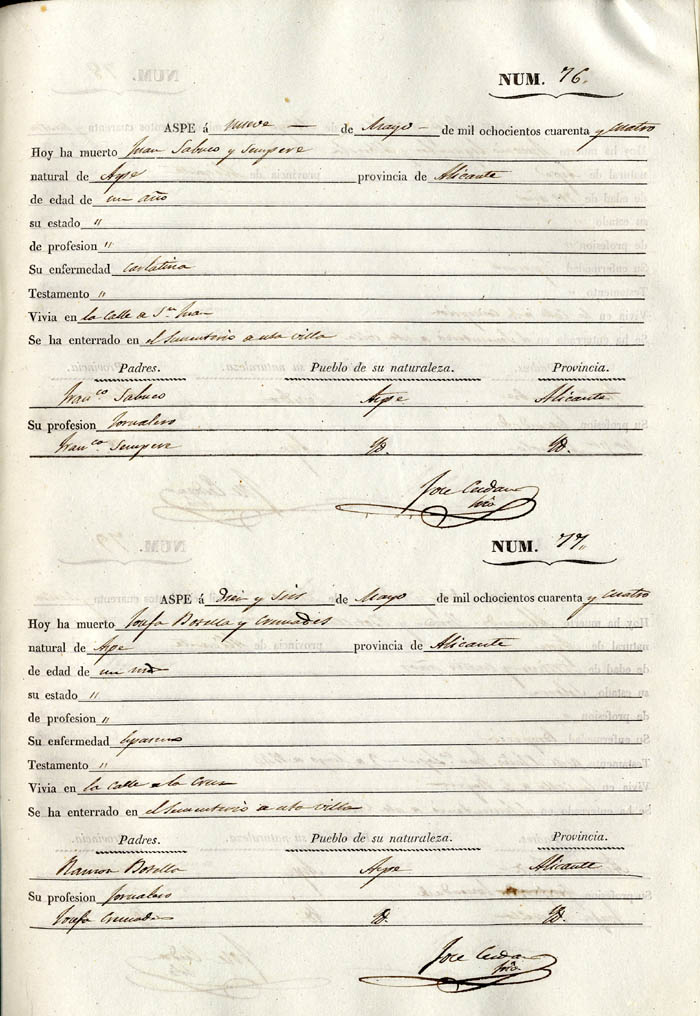 NUM. 76.
ASPE á nueve de Mayo de mil ochocientos cuarenta y cuatro
Hoy ha muerto Juan Sabuco y Sempere
natural de Aspe provincia de Alicante
de edad de un año
su estado "
de profesion "
Su enfermedad carlatina
Testamento "
Vivia en la calle de Sn Juan
Se ha enterrado en el Sementerio de esta villa
Padres. Pueblo de su naturaleza. Provincia.
Franco. Sabuco Aspe Alicante
Su profesion Jornalero
Franca. Sempere Yd. Yd.
Jose
NUM. 77.
ASPE á Diez y Seis de Mayo de mil ochocientos cuarenta y cuatro
Hoy ha muerto Josefa Botella y Cremades
natural de Aspe provincia de Alicante
de edad de un mes
su estado "
de profesion "
Su enfermedad Espasmo
Testamento "
Vivia en la calle de la Cruz
Se ha enterrado en el Sementerio de esta villa
Padres. Pueblo de su naturaleza. Provincia.
Ramon Botella Aspe Alicante
Su profesion Jornalero
Josefa Cremades Yd. Yd.
Jose